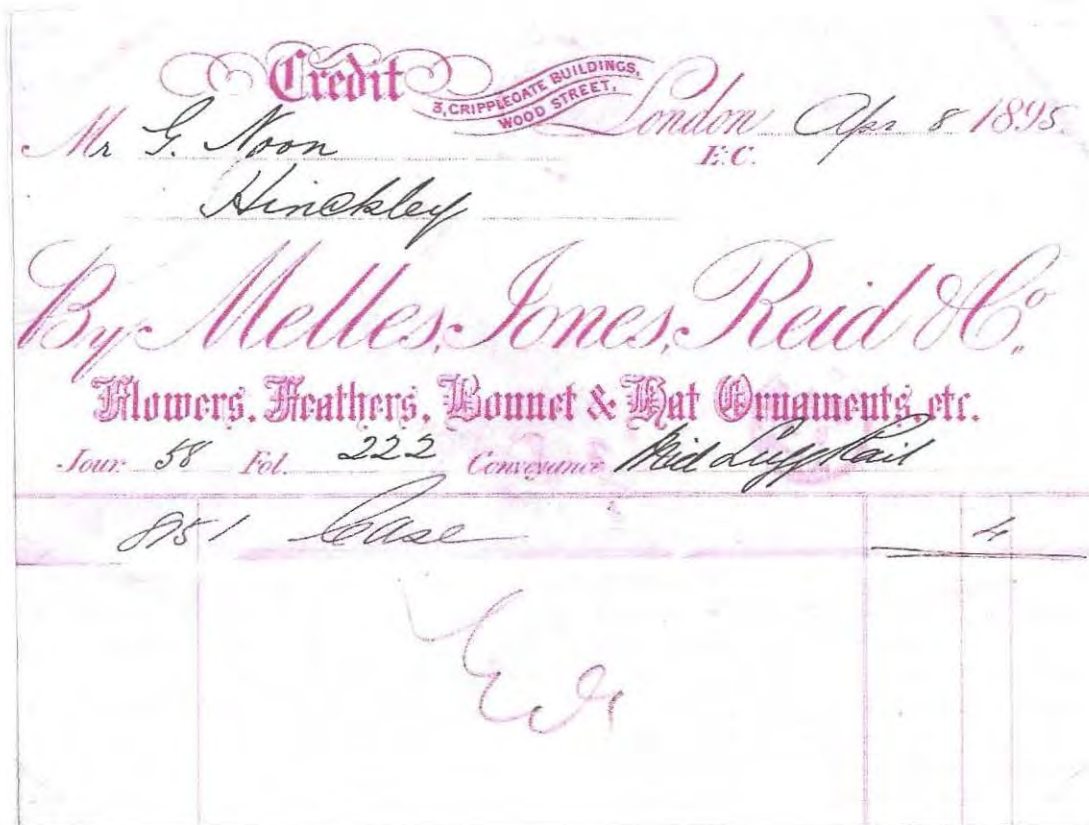 Credit
3, CRIPPLEGATE BUILDINGS,
WOOD STREET,
London Apr 8 1895
E.C.
Mr G. Noon
Hinckley
By Melles, Jones, Reid & Co.,
Flowers, Feathers, Bonnet & Hat Ornaments, etc.
Jour 58 Fol. 222 Conveyance Mid Lugg Rail
851 Case 4